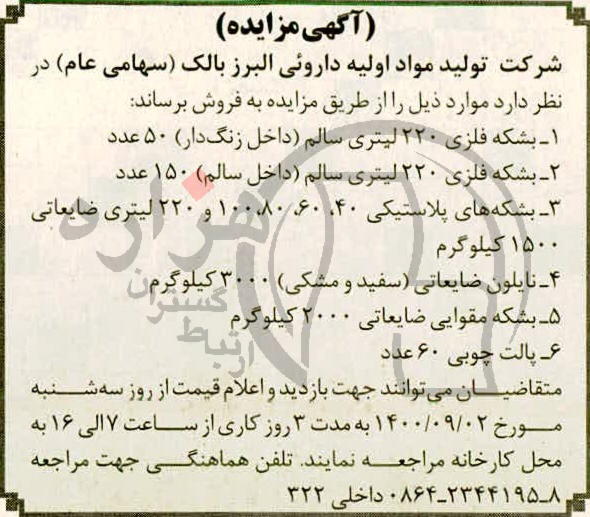 (آگهی مزایده)
شرکت تولید مواد اولیه داروئی البرز بالک (سهامی عام) در
نظر دارد موارد ذیل را از طریق مزایده به فروش برساند:
۱ـ بشکه فلزی ۲۲۰ لیتری سالم (داخل زنگ‌دار) ۵۰ عدد
۲ـ بشکه فلزی ۲۲۰ لیتری سالم (داخل سالم) ۱۵۰ عدد
۳ـ بشکه‌های پلاستیکی ۴۰، ۶۰، ۸۰، ۱۰۰ و ۲۲۰ لیتری ضایعاتی
۱۵۰۰ کیلوگرم
۴ـ نایلون ضایعاتی (سفید و مشکی) ۳۰۰۰ کیلوگرم
۵ـ بشکه مقوایی ضایعاتی ۲۰۰۰ کیلوگرم
۶ـ پالت چوبی ۶۰ عدد
متقاضیان می‌توانند جهت بازدید و اعلام قیمت از روز سه‌شنبه
مورخ ۱۴۰۰/۰۹/۰۲ به مدت ۳ روز کاری از ساعت ۷ الی ۱۶ به
محل کارخانه مراجعه نمایند. تلفن هماهنگی جهت مراجعه
۸ـ۰۸۶۴ـ۲۳۴۴۱۹۵ داخلی ۳۲۲
هزاره
گستران
ارتباط